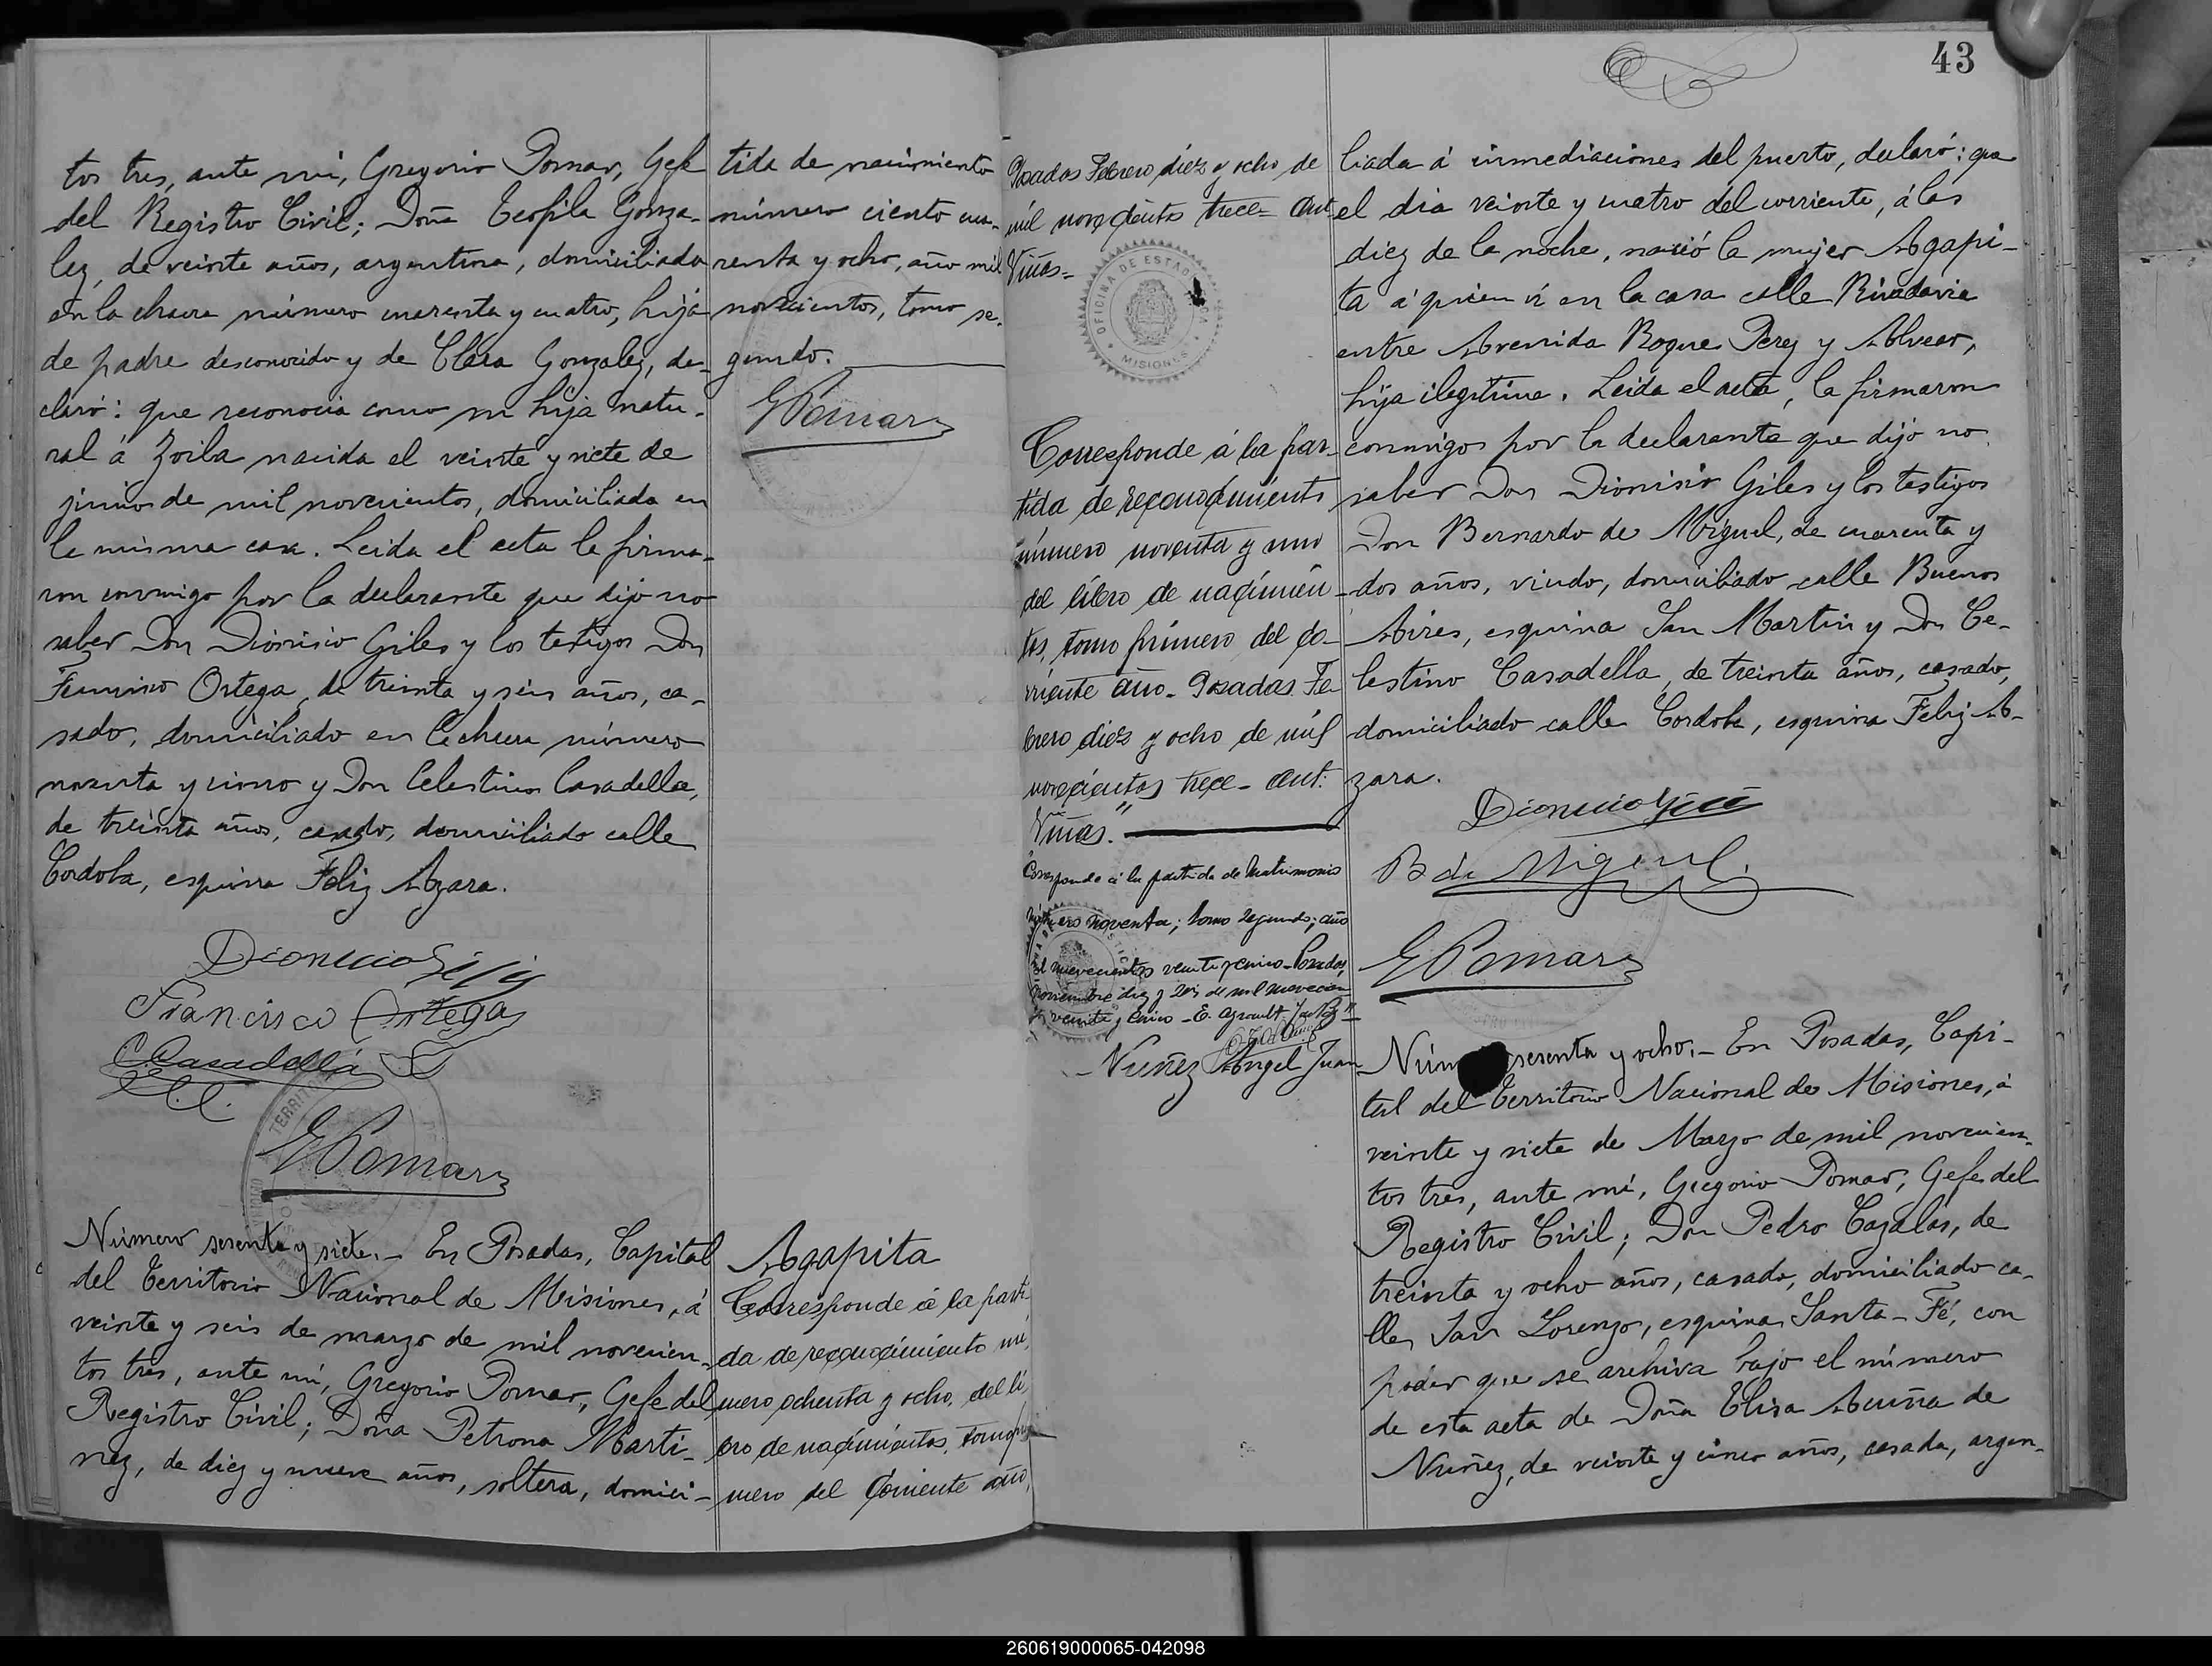 tos tres, ante mi, Gregorio Pomar, Gefe
del Registro Civil; Doña Teofila Gonza-
lez, de veinte años, argentina, domiciliada
en la chacra número cuarenta y cuatro, hija
de padre desconocido y de Clara Gonzalez, de-
claró: que reconocia como su hija natu-
ral á Zoila nacida el veinte y siete de
junio de mil novecientos, domiciliada en
la misma casa. Leida el acta la firma-
ron conmigo por la declarante que dijo no
saber Don Dionisio Giles y los testigos Don
Ortega, de treinta y seis años, ca-
sado, domiciliado en la chacra número
noventa y cinco y Don Celestino Casadella,
de treinta años, casado, domiciliado calle
Cordoba, esquina Feliz Azara.
Dionicio Gili
Francisco Ortega
C. Casadellá
G Pomar
Número sesenta y siete.- En Posadas, Capital
del Territorio Nacional de Misiones, á
veinte y seis de marzo de mil novecien-
tos tres, ante mi, Gregorio Pomar, Gefe del
Registro Civil; Doña Petrona Marti-
nez, de diez y nueve años, soltera, domici-
tida de nacimiento
número ciento cua-
renta y ocho, año mil
novecientos, tomo se-
gundo.
G Pomar
Agapita
Corresponde á la parti
da de reconocimiento nú-
mero ochenta y ocho, del li
bro de nacimientos, tomo pri
mero del corriente año,
43
Posadas Febrero diez y ocho de
mil novecientos trece= Ant
Viñas=
OFICINA DE ESTADISTICA
MISIONES
Corresponde á la par-
tida de reconocimiento
número noventa y uno
del libro de nacimien-
tos, tomo primero del co-
rriente año- Posadas Fe
brero diez y ocho de mil
novecientos trece- Ant:
Viñas."
Corresponde á la partida de Matrimonio
número noventa; tomo segundo; año
mil novecientos veinte y cinco-Posadas,
Noviembre diez y seis de mil novecien
tos veinte y cinco -E.
Nuñez Angel Juan
liada á inmediaciones del puerto, declaró: que
el dia veinte y cuatro del corriente, á las
diez de la noche, nació la mujer Agapi-
ta á quien ví en la casa calle Rivadavia
entre Avenida Roque Perez y Alvear,
hija ilegitima. Leida el acta, la firmaron
conmigo por la declarante que dijo no
saber Don Dionisio Giles y los testigos
Don Bernardo de Miguel, de cuarenta y
dos años, viudo, domiciliado calle Buenos
Aires, esquina San Martin y Don Ce-
lestino Casadella, de treinta años, casado,
domiciliado calle Cordoba, esquina Feliz A-
zara.
Dionicio Gili
B de Miguel
G Pomar
sesenta y ocho.- En Posadas, Capi-
tal del Territorio Nacional de Misiones, á
veinte y siete de Marzo de mil novecien-
tos tres, ante mí, Gregorio Pomar, Gefe del
Registro Civil; Don Pedro Cazalás, de
treinta y ocho años, casado, domiciliado ca-
lle San Lorenzo, esquina Santa-Fé, con
poder que se archiva bajo el número
de esta acta de Doña Elisa Acuña de
Nuñez, de veinte y cinco años, casada, argen-
260619000065-042098